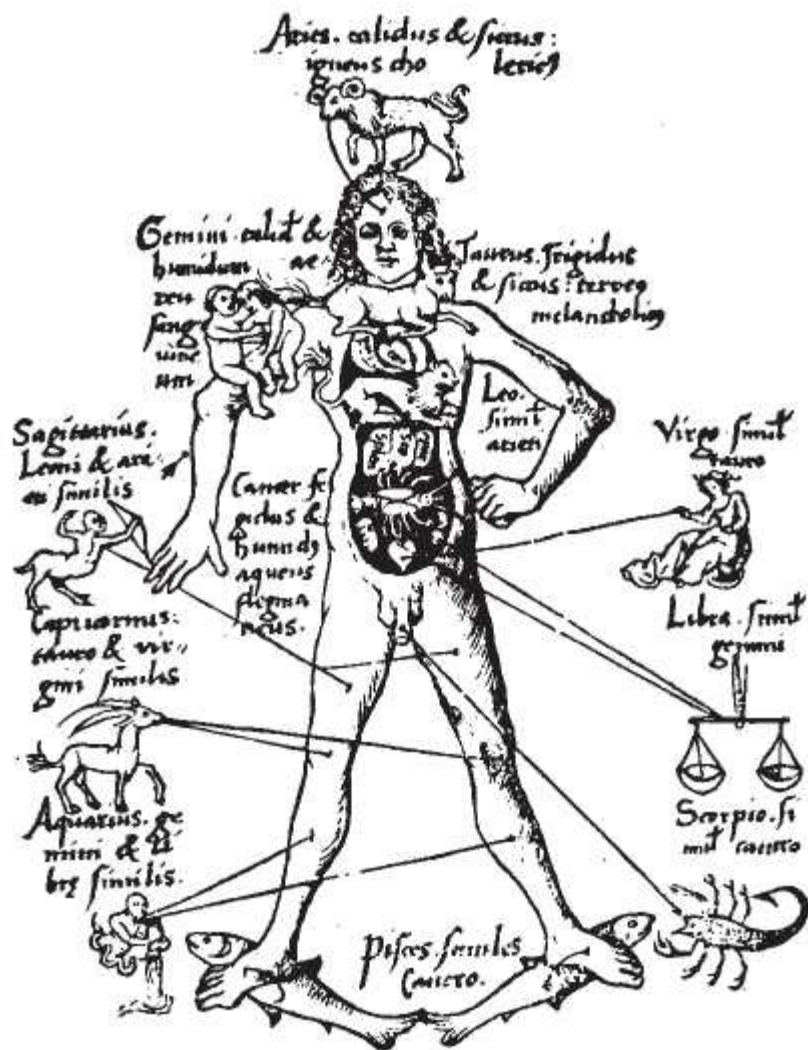 Aries. calidus & siccus:
igneus cho lericꝰ
Gemini. calid &
humidum ae
reu
sang
uine
um
Taurus. frigidus
& siccus: terreꝰ
melancholicꝰ
Leo.
simil
arieti
Sagittarius.
Leoni & ari
eti similis
Cancer fr
gidus &
humidꝰ
aqueus
flegma
ticus.
Virgo. simil
tauro
Capricornus:
tauro & vir
gini similis
Libra. simil
gemini
Aquarius. ge
mini & li
brę similis.
Scorpio. si
mil cancro
Pisces. similes
Cancro.